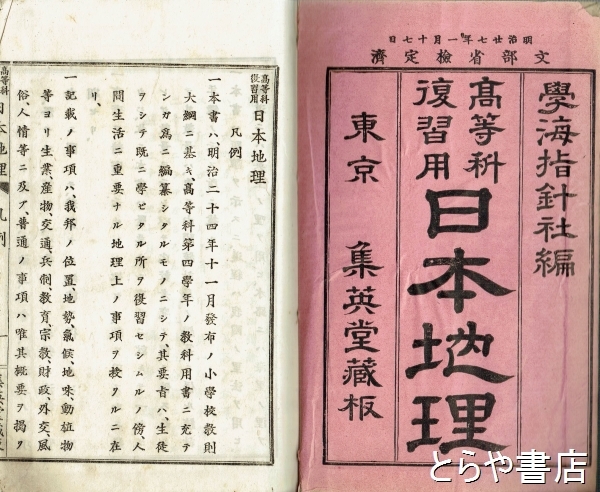 明治廿七年一月十七日
文部省檢定濟
學海指針社編
高等科
復習用
日本地理
東京 集英堂藏板
高等科
復習用 日本地理
凡例
一本書ハ、明治二十四年十一月發布ノ小學校敎則
大綱ニ基キ、高等科第四學年ノ敎科用書ニ充テ
ンガ爲ニ編纂シタルモノニシテ、其要旨ハ、生徒
ヲシテ既ニ學ビタル所ヲ復習セシムルノ傍、人
間生活ニ重要ナル地理上ノ事項ヲ授クルニ在
リ。
一記載ノ事項ハ、我邦ノ位置、地勢、氣候、地味、動植物
等ヨリ生業、産物、交通、兵制、敎育、宗敎、財政、外交、風
俗、人情等ニ及ブ、普通ノ事項ハ唯其概要ヲ揭ク
高等科 日本地理 凡例 一
とらや書店